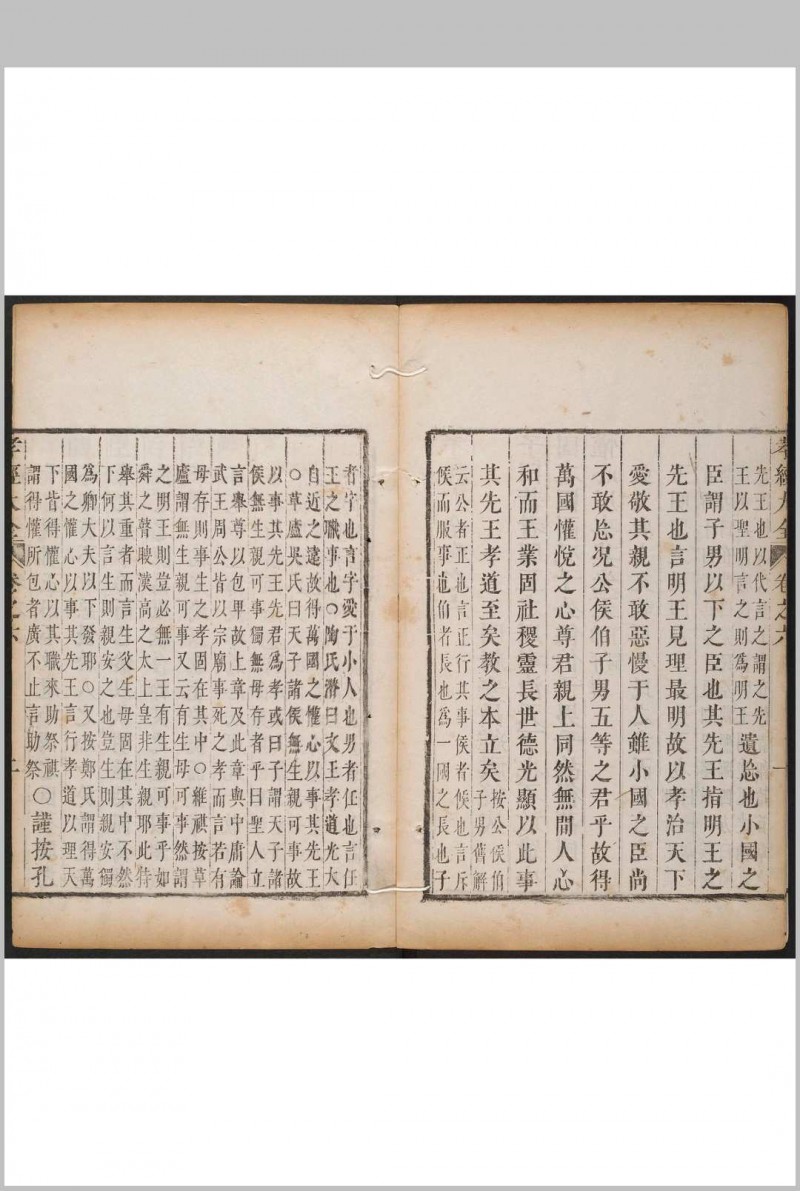 孝經大全 卷之六 一
先王也以代言之謂之先
王以聖明言之則爲明王
遺忘也小國之
臣謂子男以下之臣也其先王指明王之
先王也言明王見理最明故以孝治天下
愛敬其親不敢惡慢于人雖小國之臣尚
不敢忘況公侯伯子男五等之君乎故得
萬國懽悅之心尊君親上同然無間人心
和而王業固社稷靈長世德光顯以此事
其先王孝道至矣教之本立矣
按公侯伯
子男舊解
云公者正也言正行其事侯者候也言斥
候而服事也伯者長也爲一國之長也子
者字也言字愛于小人也男者任也言任
王之職事也○陶氏潛曰文王孝道光大
自近之遠故得萬國之懽心以事其先王
○草廬吳氏曰天子諸侯無生親可事故
以事其先王先君爲孝或曰子謂天子諸
侯無生親可事獨無母存者乎曰聖人立
言舉尊以包卑故上章及此章與中庸論
武王周公皆以宗廟事死之孝而言若有
母存則事生之孝固在其中○維祺按草
廬謂無生親可事又云有生母可事然謂
之明王則豈必無一王有生親可事乎如
舜之瞽瞍漢高之太上皇非生親耶此特
舉其重者而言生父生母固在其中不然
下何以言生則親安之也豈生則親安獨
爲卿大夫以下發耶○又按鄭氏謂得萬
國之懽心以事其先王言行孝道以理天
下皆得懽心以其職來助祭祺
謂得懽所包者廣不止言助祭
○謹按孔
孝經大全 卷之六 二